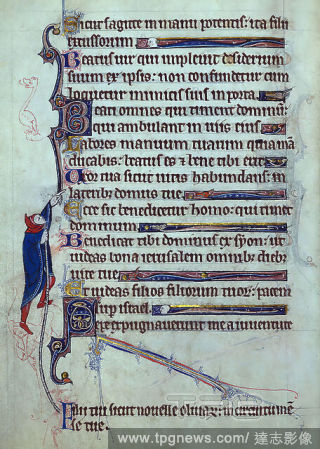 Sicut sagitte in manu potentis: ita filii
excussorum
Beatus vir qui implevit desiderium
suum ex ipsis: non confundetur cum
loquetur inimicis suis in porta
Beati omnes qui timent dominum:
qui ambulant in viis eius
Labores manuum tuarum quia mān
ducabis: beatus es et bene tibi erit
Uxor tua sicut vitis habundans: in
lateribus domus tue
Ecce sic benedicetur homo: qui timet
dominum
Benedicat tibi dominus ex syon: ut
videas bona ierusalem omnibus diebus
vite tue
Et videas filios filiorum tuorum: pacem
super israel
Sepe expugnaverunt me a iuventute
Filii tui sicut novelle olivarum: in circuitu mēse
tue
www.tpgnews.com/ 達志影像